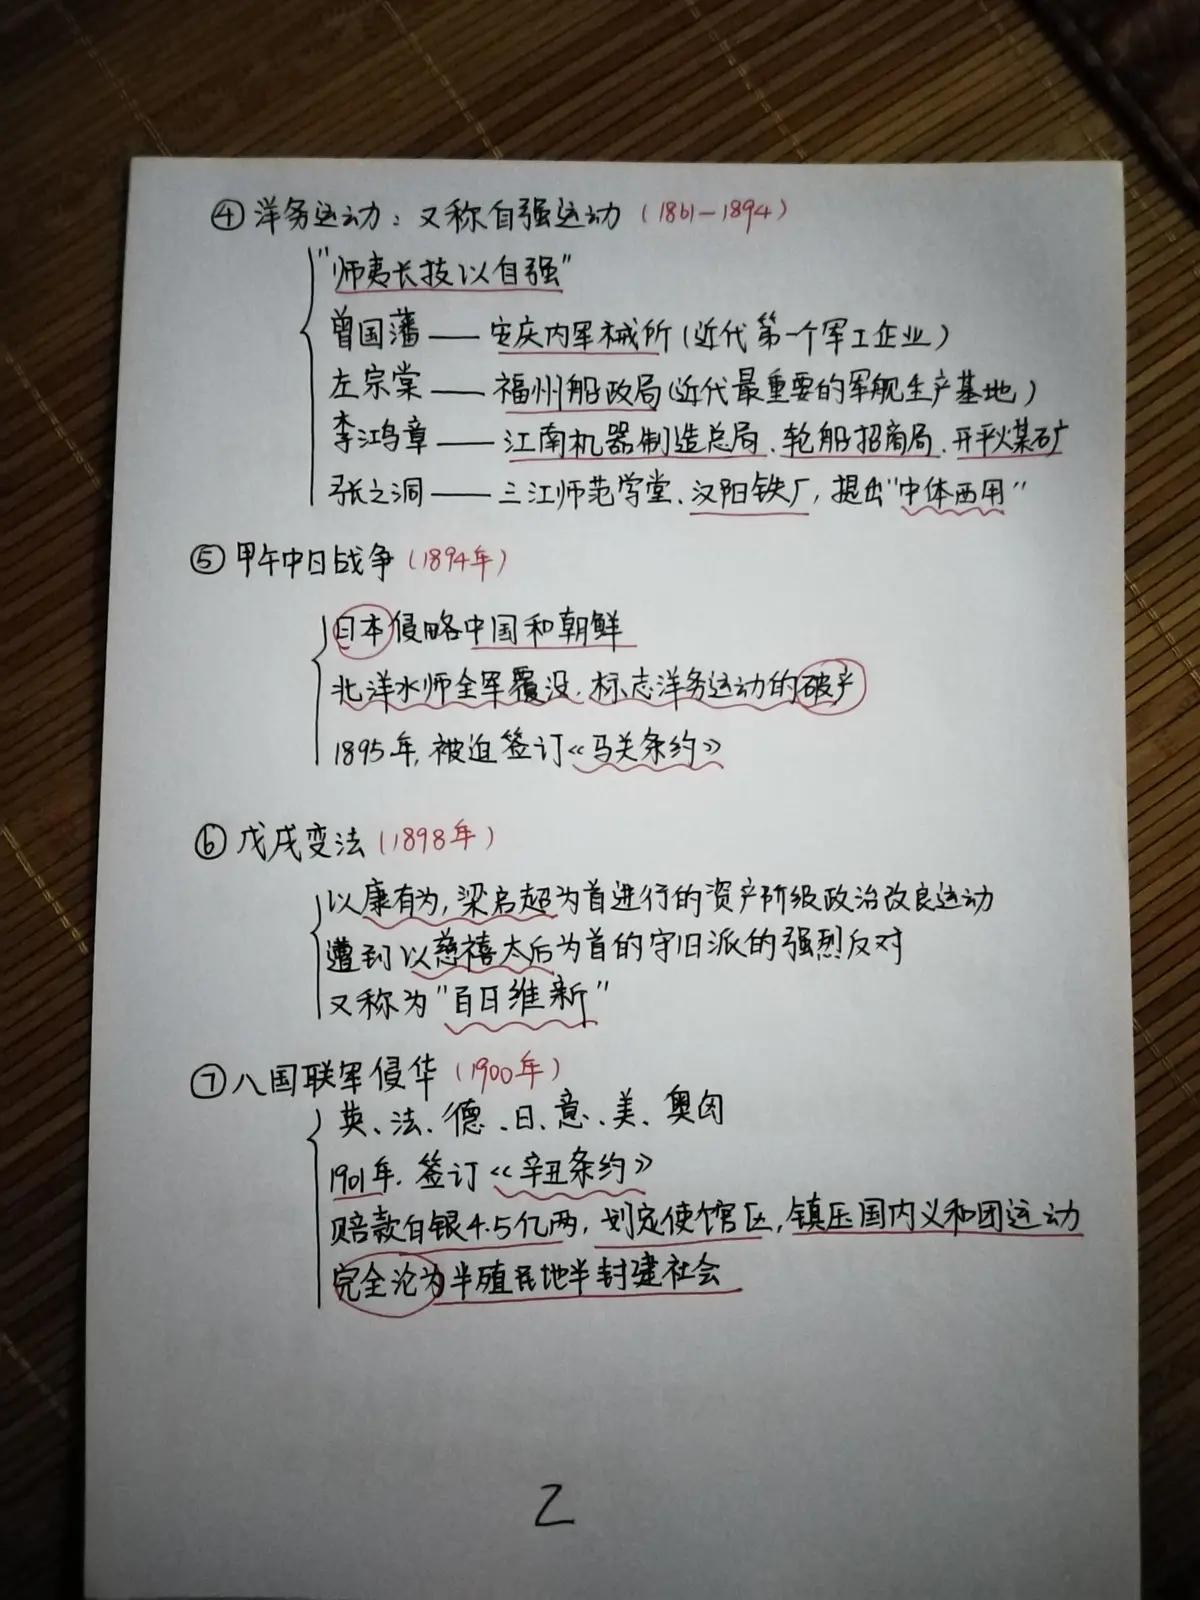 ④洋务运动：又称自强运动（1861—1894）
"师夷长技以自强"
曾国藩——安庆内军械所（近代第一个军工企业）
左宗棠——福州船政局（近代最重要的军舰生产基地）
李鸿章——江南机器制造总局、轮船招商局、开平煤矿
张之洞——三江师范学堂、汉阳铁厂，提出"中体西用"
⑤甲午中日战争（1894年）
日本侵略中国和朝鲜
北洋水师全军覆没，标志洋务运动的破产
1895年，被迫签订《马关条约》
⑥戊戌变法（1898年）
以康有为，梁启超为首进行的资产阶级政治改良运动
遭到以慈禧太后为首的守旧派的强烈反对
又称为"百日维新"
⑦八国联军侵华（1900年）
英、法、德、日、意、美、奥匈
1901年，签订《辛丑条约》
赔款白银4.5亿两，划定使馆区，镇压国内义和团运动
完全沦为半殖民地半封建社会
2